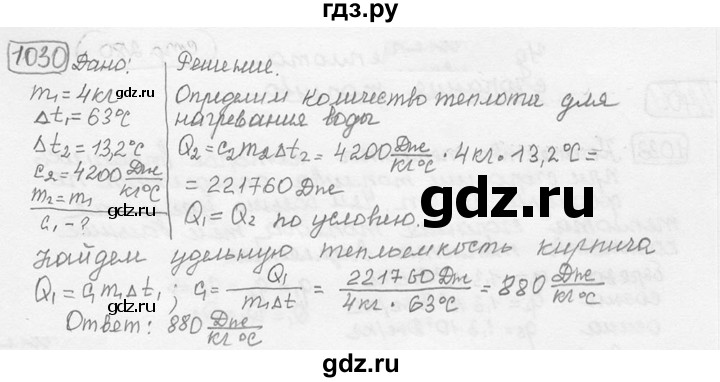 гдз.ру
1030 Дано: Решение.
m₁ = 4 кг
Δt₁ = 63°C
Δt₂ = 13,2°C
c₂ = 4200 Дж/кг°C
m₂ = m₁
c₁ - ?
Определим количество теплоты для
нагревания воды
Q₂ = c₂m₂Δt₂ = 4200 Дж/кг°C · 4 кг · 13,2°C =
= 221760 Дж
Q₁ = Q₂ по условию.
Найдем удельную теплоемкость кирпича
Q₁ = c₁m₁Δt₁; c₁ = Q₁/m₁Δt = 221760 Дж/4 кг 63°C = 880 Дж/кг°C
Ответ: 880 Дж/кг°C
gdz.ru
gdz.ru
gdz.ru
gdz.ru
gdz.ru